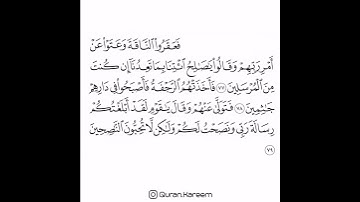 فَعَقَرُوا۟ ٱلنَّاقَةَ وَعَتَوْا۟ عَنْ
أَمْرِ رَبِّهِمْ وَقَالُوا۟ يَٰصَٰلِحُ ٱئْتِنَا بِمَا تَعِدُنَآ إِن كُنتَ
مِنَ ٱلْمُرْسَلِينَ ٧٧ فَأَخَذَتْهُمُ ٱلرَّجْفَةُ فَأَصْبَحُوا۟ فِى دَارِهِمْ
جَٰثِمِينَ ٧٨ فَتَوَلَّىٰ عَنْهُمْ وَقَالَ يَٰقَوْمِ لَقَدْ أَبْلَغْتُكُمْ
رِسَالَةَ رَبِّى وَنَصَحْتُ لَكُمْ وَلَٰكِن لَّا تُحِبُّونَ ٱلنَّٰصِحِينَ
٧٩
Quran.Kareem